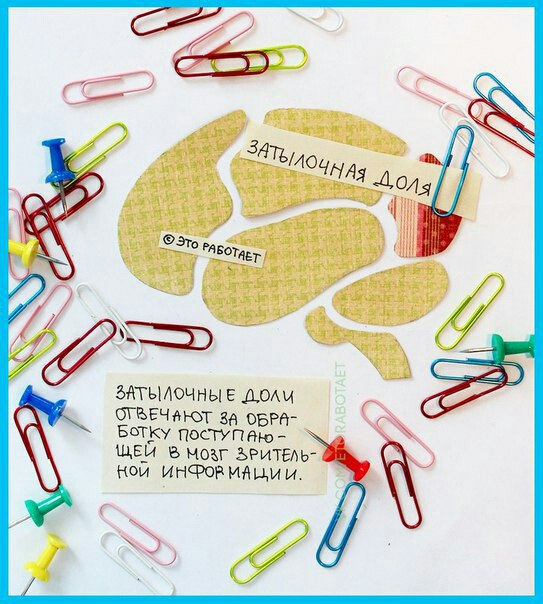 ЗАТЫЛОЧНАЯ ДОЛЯ
© ЭТО РАБОТАЕТ
ЗАТЫЛОЧНЫЕ ДОЛИ
ОТВЕЧАЮТ ЗА ОБРА-
БОТКУ ПОСТУПАЮ-
ЩЕЙ В МОЗГ ЗРИТЕЛЬ-
НОЙ ИНФОРМАЦИИ.